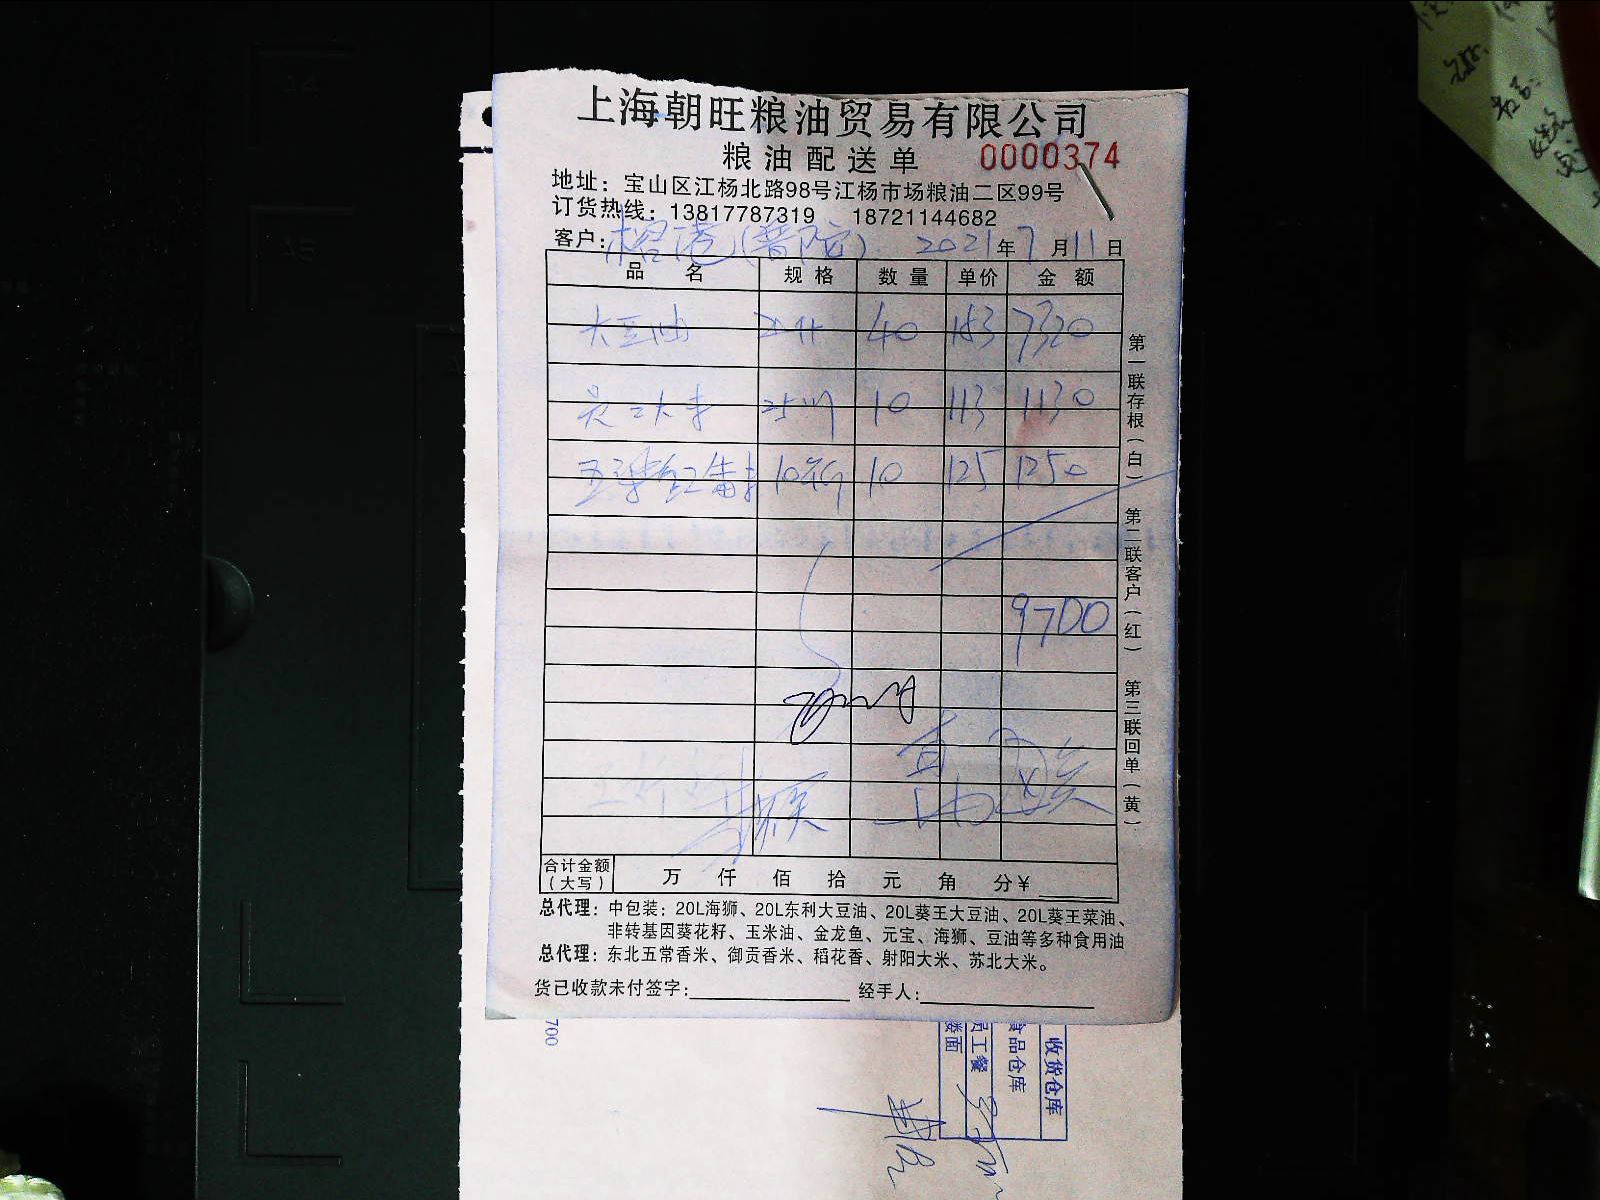 上海朝旺粮油贸易有限公司
粮油配送单 0000374
地址：宝山区江杨北路98号江杨市场粮油二区99号
订货热线：13817787319 18721144682
客户：港（普陀） 2021年7月11日
品名 规格 数量 单价 金额
大豆油 40 183 7320
10 113 1130
10 125 1250
9700
合计金额（大写） 万 仟 佰 拾 元 角 分￥
总代理：中包装：20L海狮、20L东利大豆油、20L葵王大豆油、20L葵王菜油、
非转基因葵花籽、玉米油、金龙鱼、元宝、海狮、豆油等多种食用油
总代理：东北五常香米、御贡香米、稻花香、射阳大米、苏北大米。
货已收款未付签字： 经手人：
第一联存根（白） 第二联客户（红） 第三联回单（黄）
700
收货仓库
食品仓库
员工餐
楼面